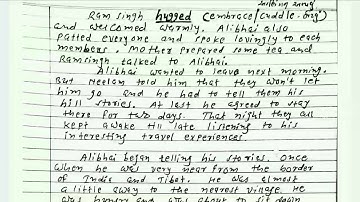 Ramsingh hugged (embrace/cuddle
and welcomed warmly. Alibhai also
patted everyone and spoke lovingly to each
members. Mother prepared some tea and
Ramsingh talked to Alibhai.
Alibhai wanted to leave next morning.
But Neelam told him that they won't let
him go and he had to tell them his
hill stories. At last he agreed to stay
there for two days. That night they all
kept awake till late listening to his
interesting travel experiences.
Alibhai began telling his stories. Once
when he was very near from the border
of India and Tibet. He was almost
a little away to the nearest village. He
was hungry and was about to sit down